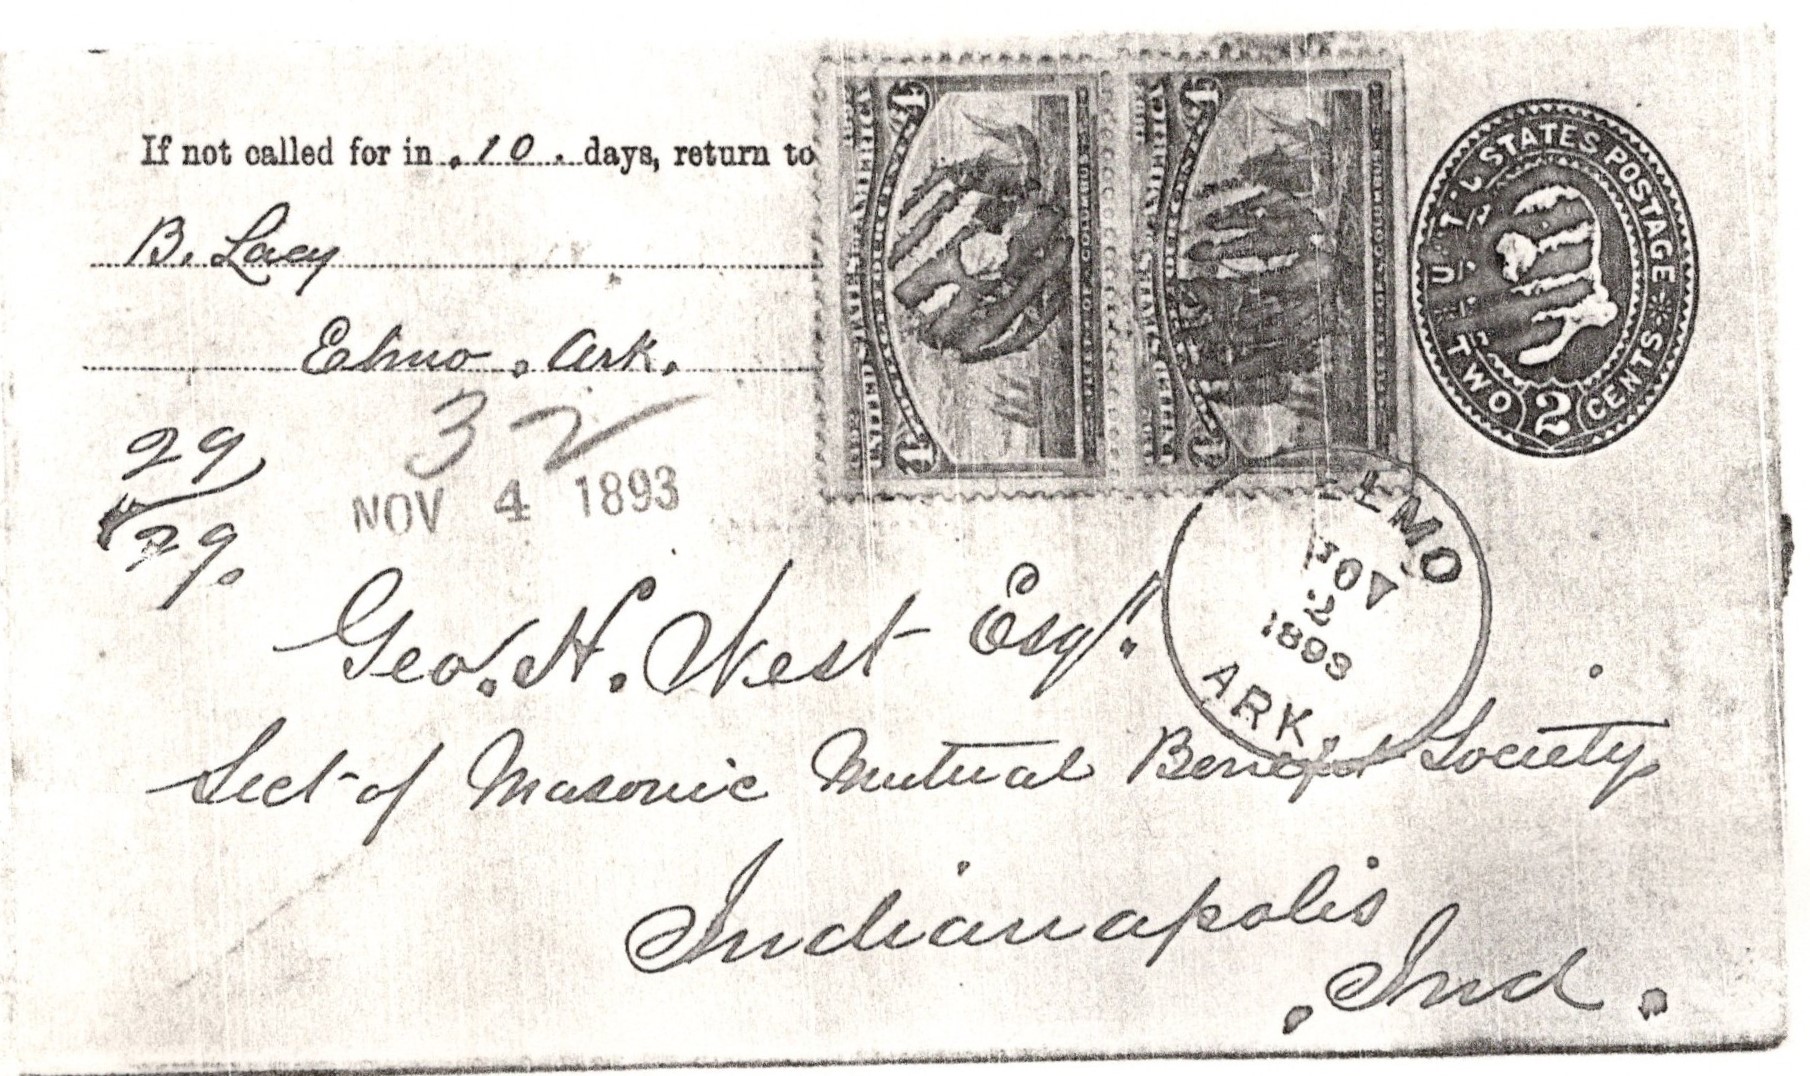 If not called for in .10. days, return to
B. Lacy
Elmo, Ark.
32
29
29.
NOV 4 1893
UNITED STATES POSTAGE
TWO 2 CENTS
UNITED STATES OF AMERICA
UNITED STATES OF AMERICA
ELMO
NOV
2
1893
ARK
Geo. H. West Esq.
Sect of Masonic Mutual Benefit Society
Indianapolis
, Ind.